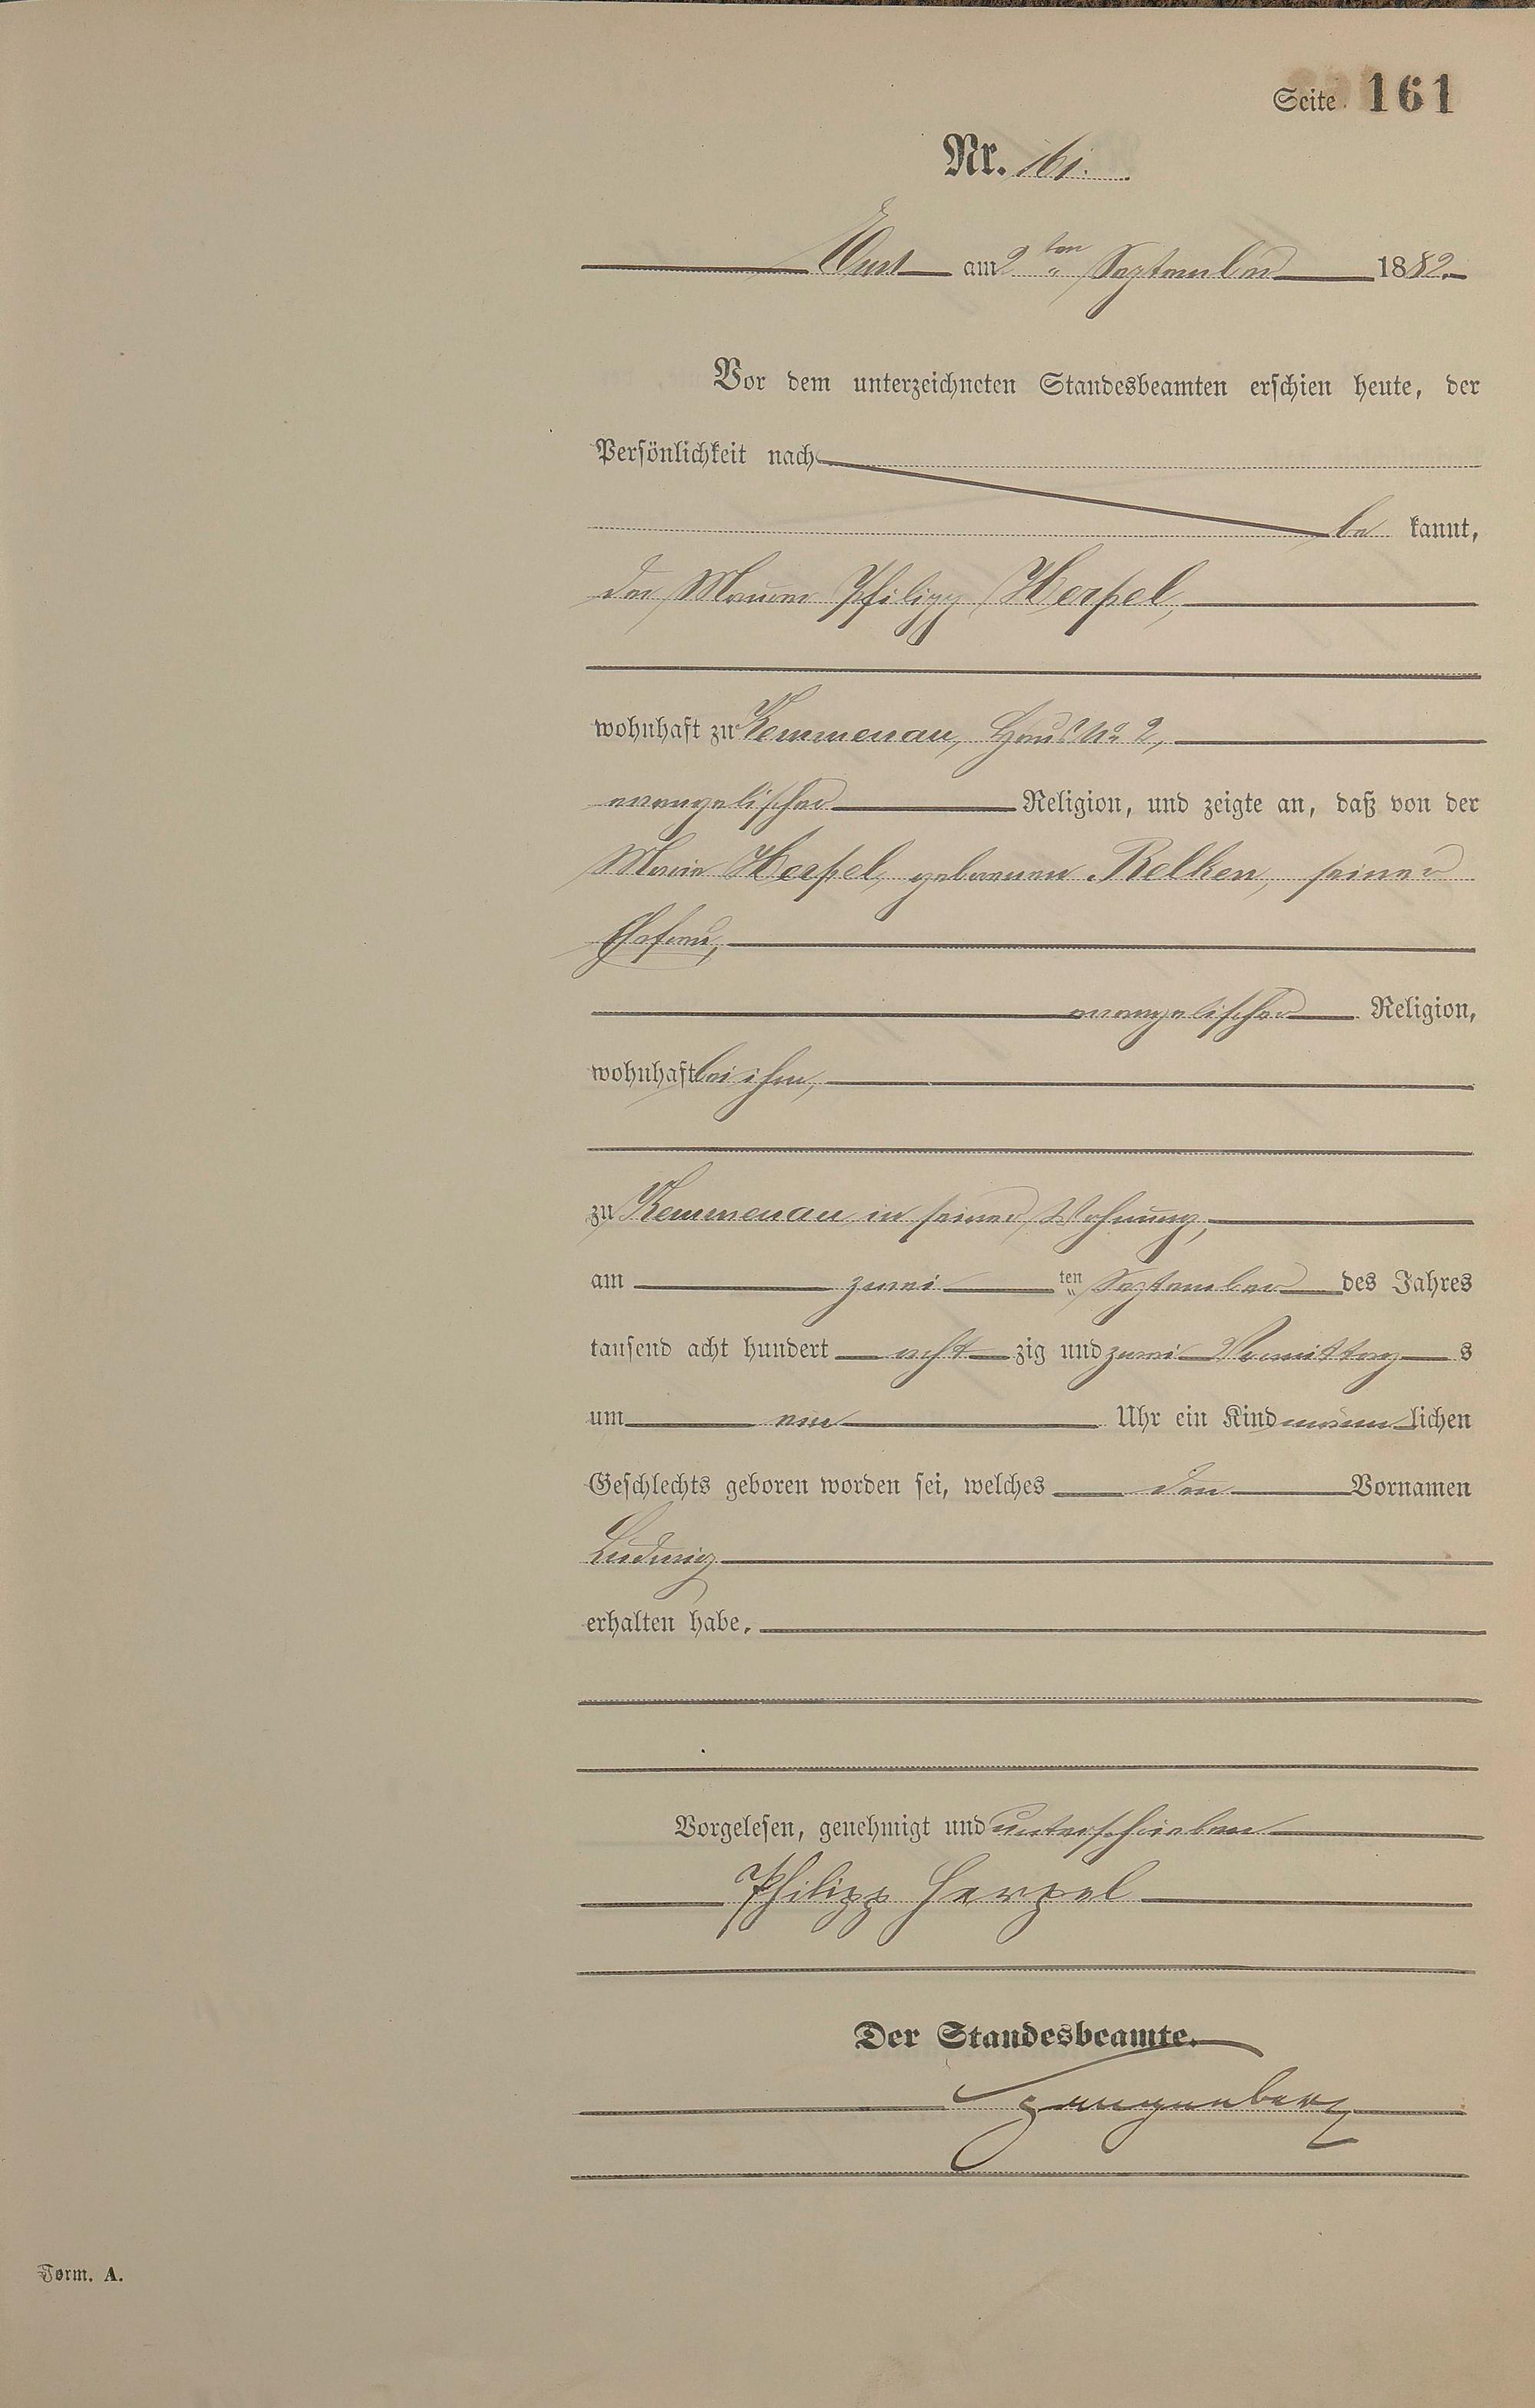 Seite 161
Nr. 161.
Ems am 2ten September 1882.
Vor dem unterzeichneten Standesbeamten erschien heute, der
Persönlichkeit nach
be kannt,
der Maurer Philipp Herpel,
wohnhaft zu Kemmenau, Haus No 2,
evangelischer Religion, und zeigte an, daß von der
Marie Herpel, geborenen Relken, seiner
Ehefrau,
evangelischer Religion,
wohnhaft bei ihm,
zu Kemmenau in seiner Wohnung,
am zwei ten September des Jahres
tausend acht hundert acht zig und zwei Vormittag s
um Uhr ein Kind männ lichen
Geschlechts geboren worden sei, welches den Vornamen
Ludwig
erhalten habe.
Vorgelesen, genehmigt und unterschrieben
Philipp Herpel
Der Standesbeamte.
Form. A.